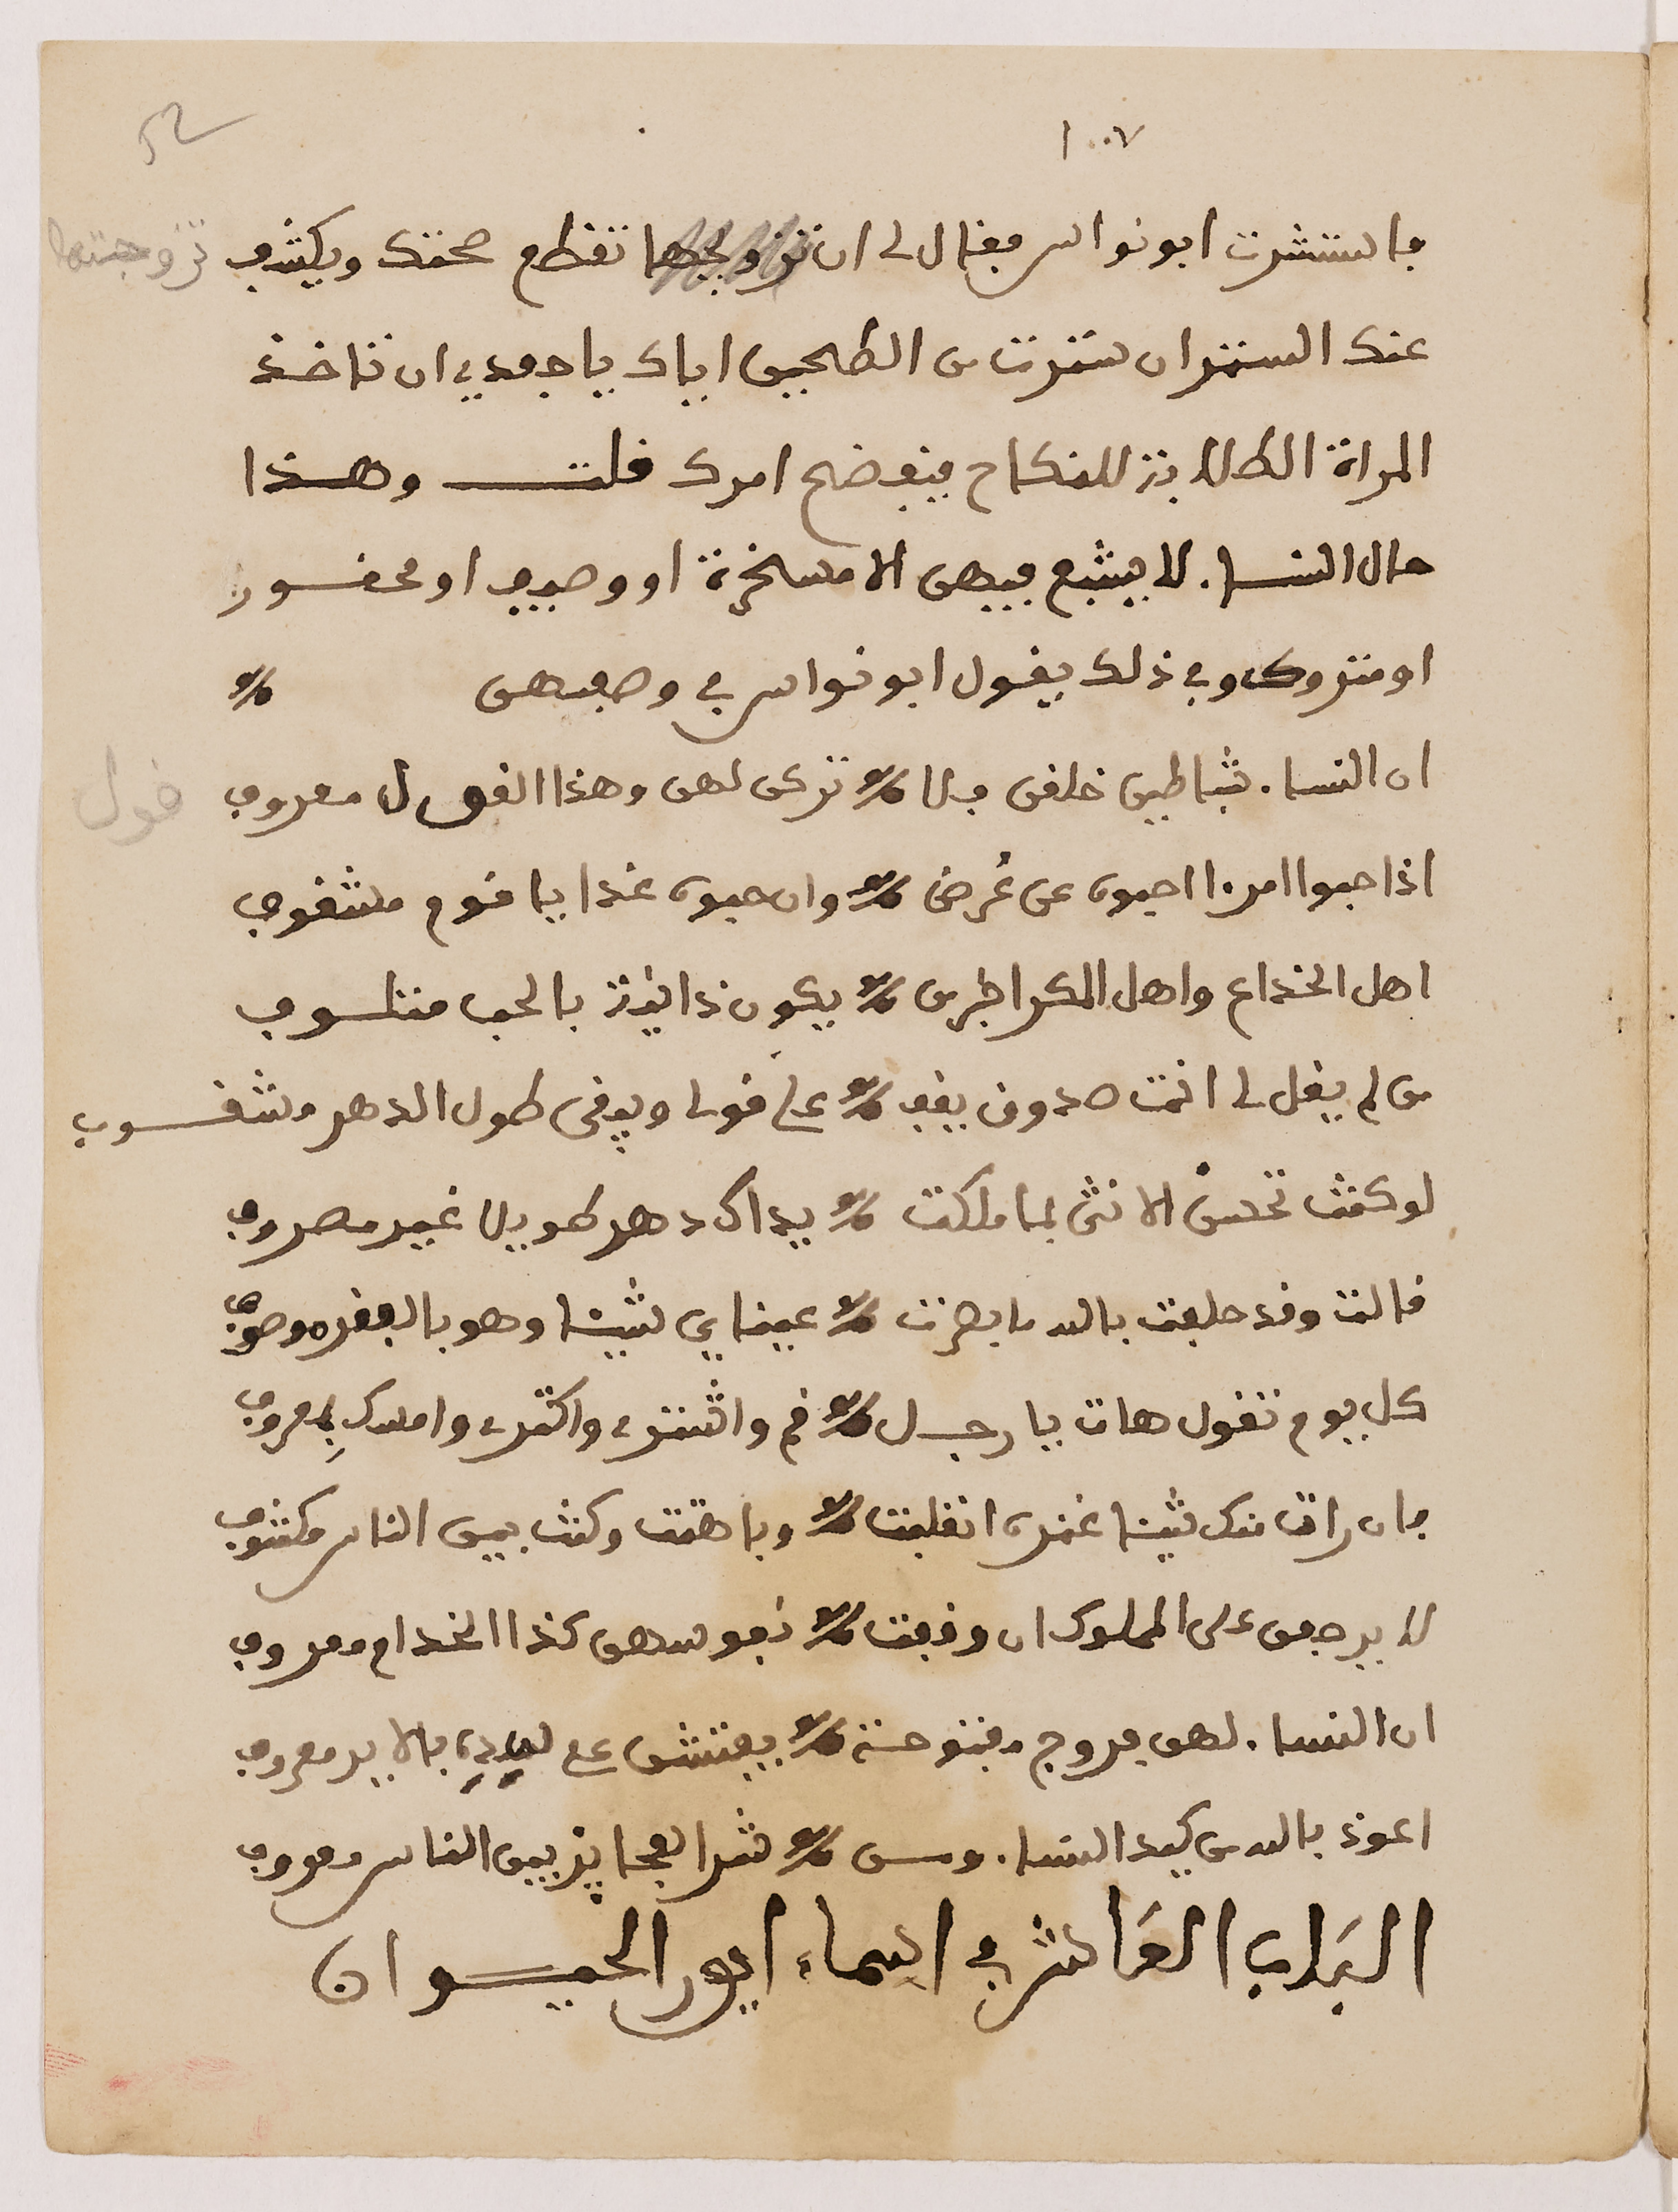 ١٠٠٧
فاستشرت ابو نواس فقال لى ان تزوجها تقطع صحتك ويكشف تزوجتها
عنك الستر ان سترت من الطحين اياك يا جعيدي ان تاخذ
المراة الطلابة للنكاح فيفضح امرك قلت وهذا
حال النساء لا يشبع فيهن الا مسخرة او وصيف او محقور
او متروك وفي ذلك يقول ابو نواس في وصفهن
ان النساء شياطين خلقن فلا تركن لهن وهذا القول معروف قول
اذا حبوا امرءا احبوه عن غرض وان حبوه غدا يا قوم مشغوف
اهل الخداع واهل المكر اجرمن يكون ذايذة بالحب متلوف
من لم يقل لى انت صدوق يقف على قولى ويبقى طول الدهر مشغوف
لو كنت تحسن الانثى بما ملكت يداك دهر طويلا غير مصروف
قالت وقد حلفت بالله ما بصرت عيناي شيئا وهو بالفقر موصوف
كل يوم تقول هات يا رجل قم واشترى واكترى وامسك بمعروف
فان رات منك شيئا غمره انقلبت وباهتت وكنت بين الناس مكشوف
لا يرجعن على المملوك ان وقفت نفوسهن كذا الخدام معروف
ان النساء لهن فروج مفتوحة يفتشن على سيد بالاير معروف
اعوذ بالله من كيد النساء ومن شر العجايز بين الناس معروف
البَاب العَاشر في اسماء ايور الحيوان